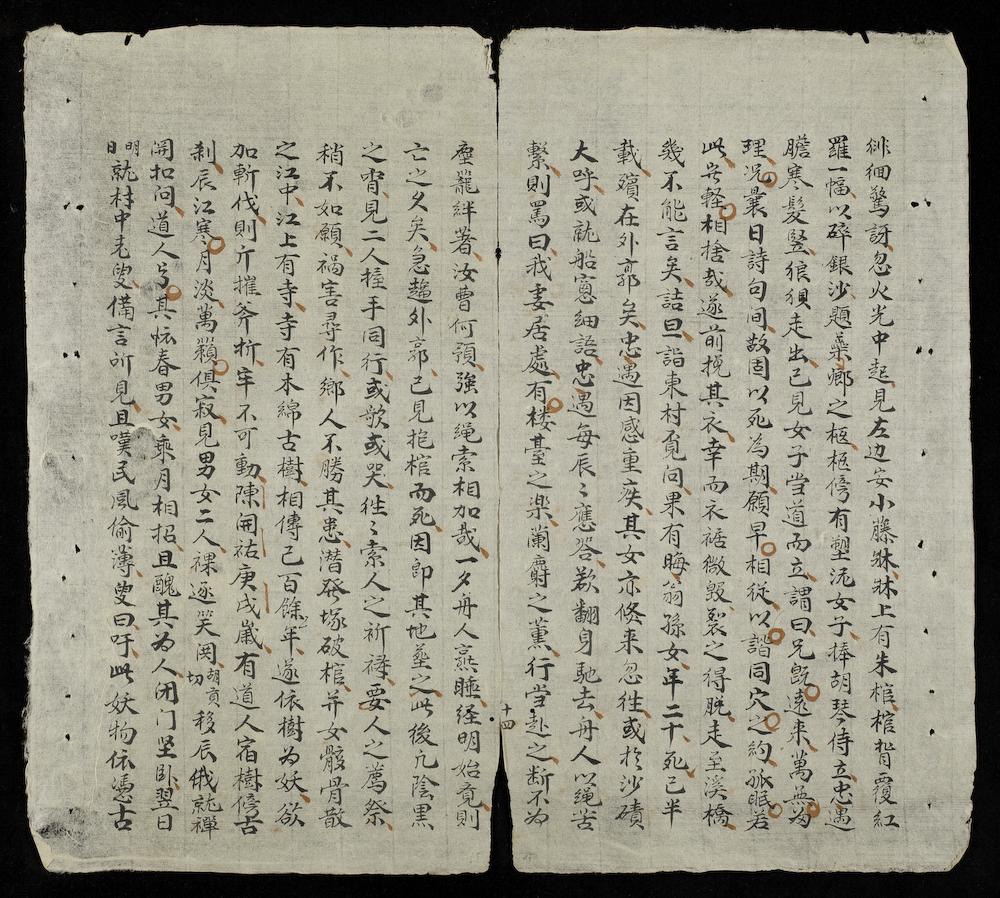 徘徊驚訝忽火光中起見左边安小藤牀牀上有朱棺棺背覆紅
羅一幅以碎銀沙題蘂娘之柩柩傍有塑泥女子捧胡琴侍立忠遇
膽寒髮竪狼狽走出已見女子當道而立謂曰兄既遠來萬無为
理况曩日詩句间故固以死為期願早相從以諧同穴之約孤眠若
此安軽相捨哉遂前挽其衣幸而衣裾微毀裂之得脱走至溪橋
幾不能言矣詰旦詣東村覔问果有晦翁孫女年二十死已半
載殯在外郭矣忠遇因感重疾其女亦倏來忽徃或扵沙磧
大呼或就船窻細語忠遇每辰〻應答欻翻身馳去舟人以䋲苦
繫則罵曰我妻居處有楼臺之楽蘭麝之薰行當赴之断不为
十四
塵籠絆著汝曹何預強以䋲索相加哉一夕舟人熹睡経明始竟則
亡之久矣急趨外郭已見抱棺而死因即其地塟之此後凢陰黒
之宵見二人捶手同行或歌或哭徃〻索人之祈禳要人之薦祭
稍不如願禍害尋作鄉人不勝其患潜發塚破棺并女骸骨散
之江中江上有寺寺有木綿古樹相傳已百餘年遂依樹为妖欲
加斬伐則斤摧斧折牢不可動陳開祐庚戌歲有道人宿樹傍古
刹辰江寒月淡萬籟俱寂見男女二人裸逐笑閧胡貢切移辰俄就禪
関扣问道人亏其怀春男女乘月相招且醜其为人闭门坚卧翌日
明日就村中老叟備言所見且嘆民風偷薄叟曰吁此妖物依憑古